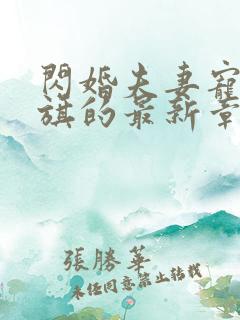 閃婚夫妻寵
旗的最新章
張勝華
未经同意禁止转载